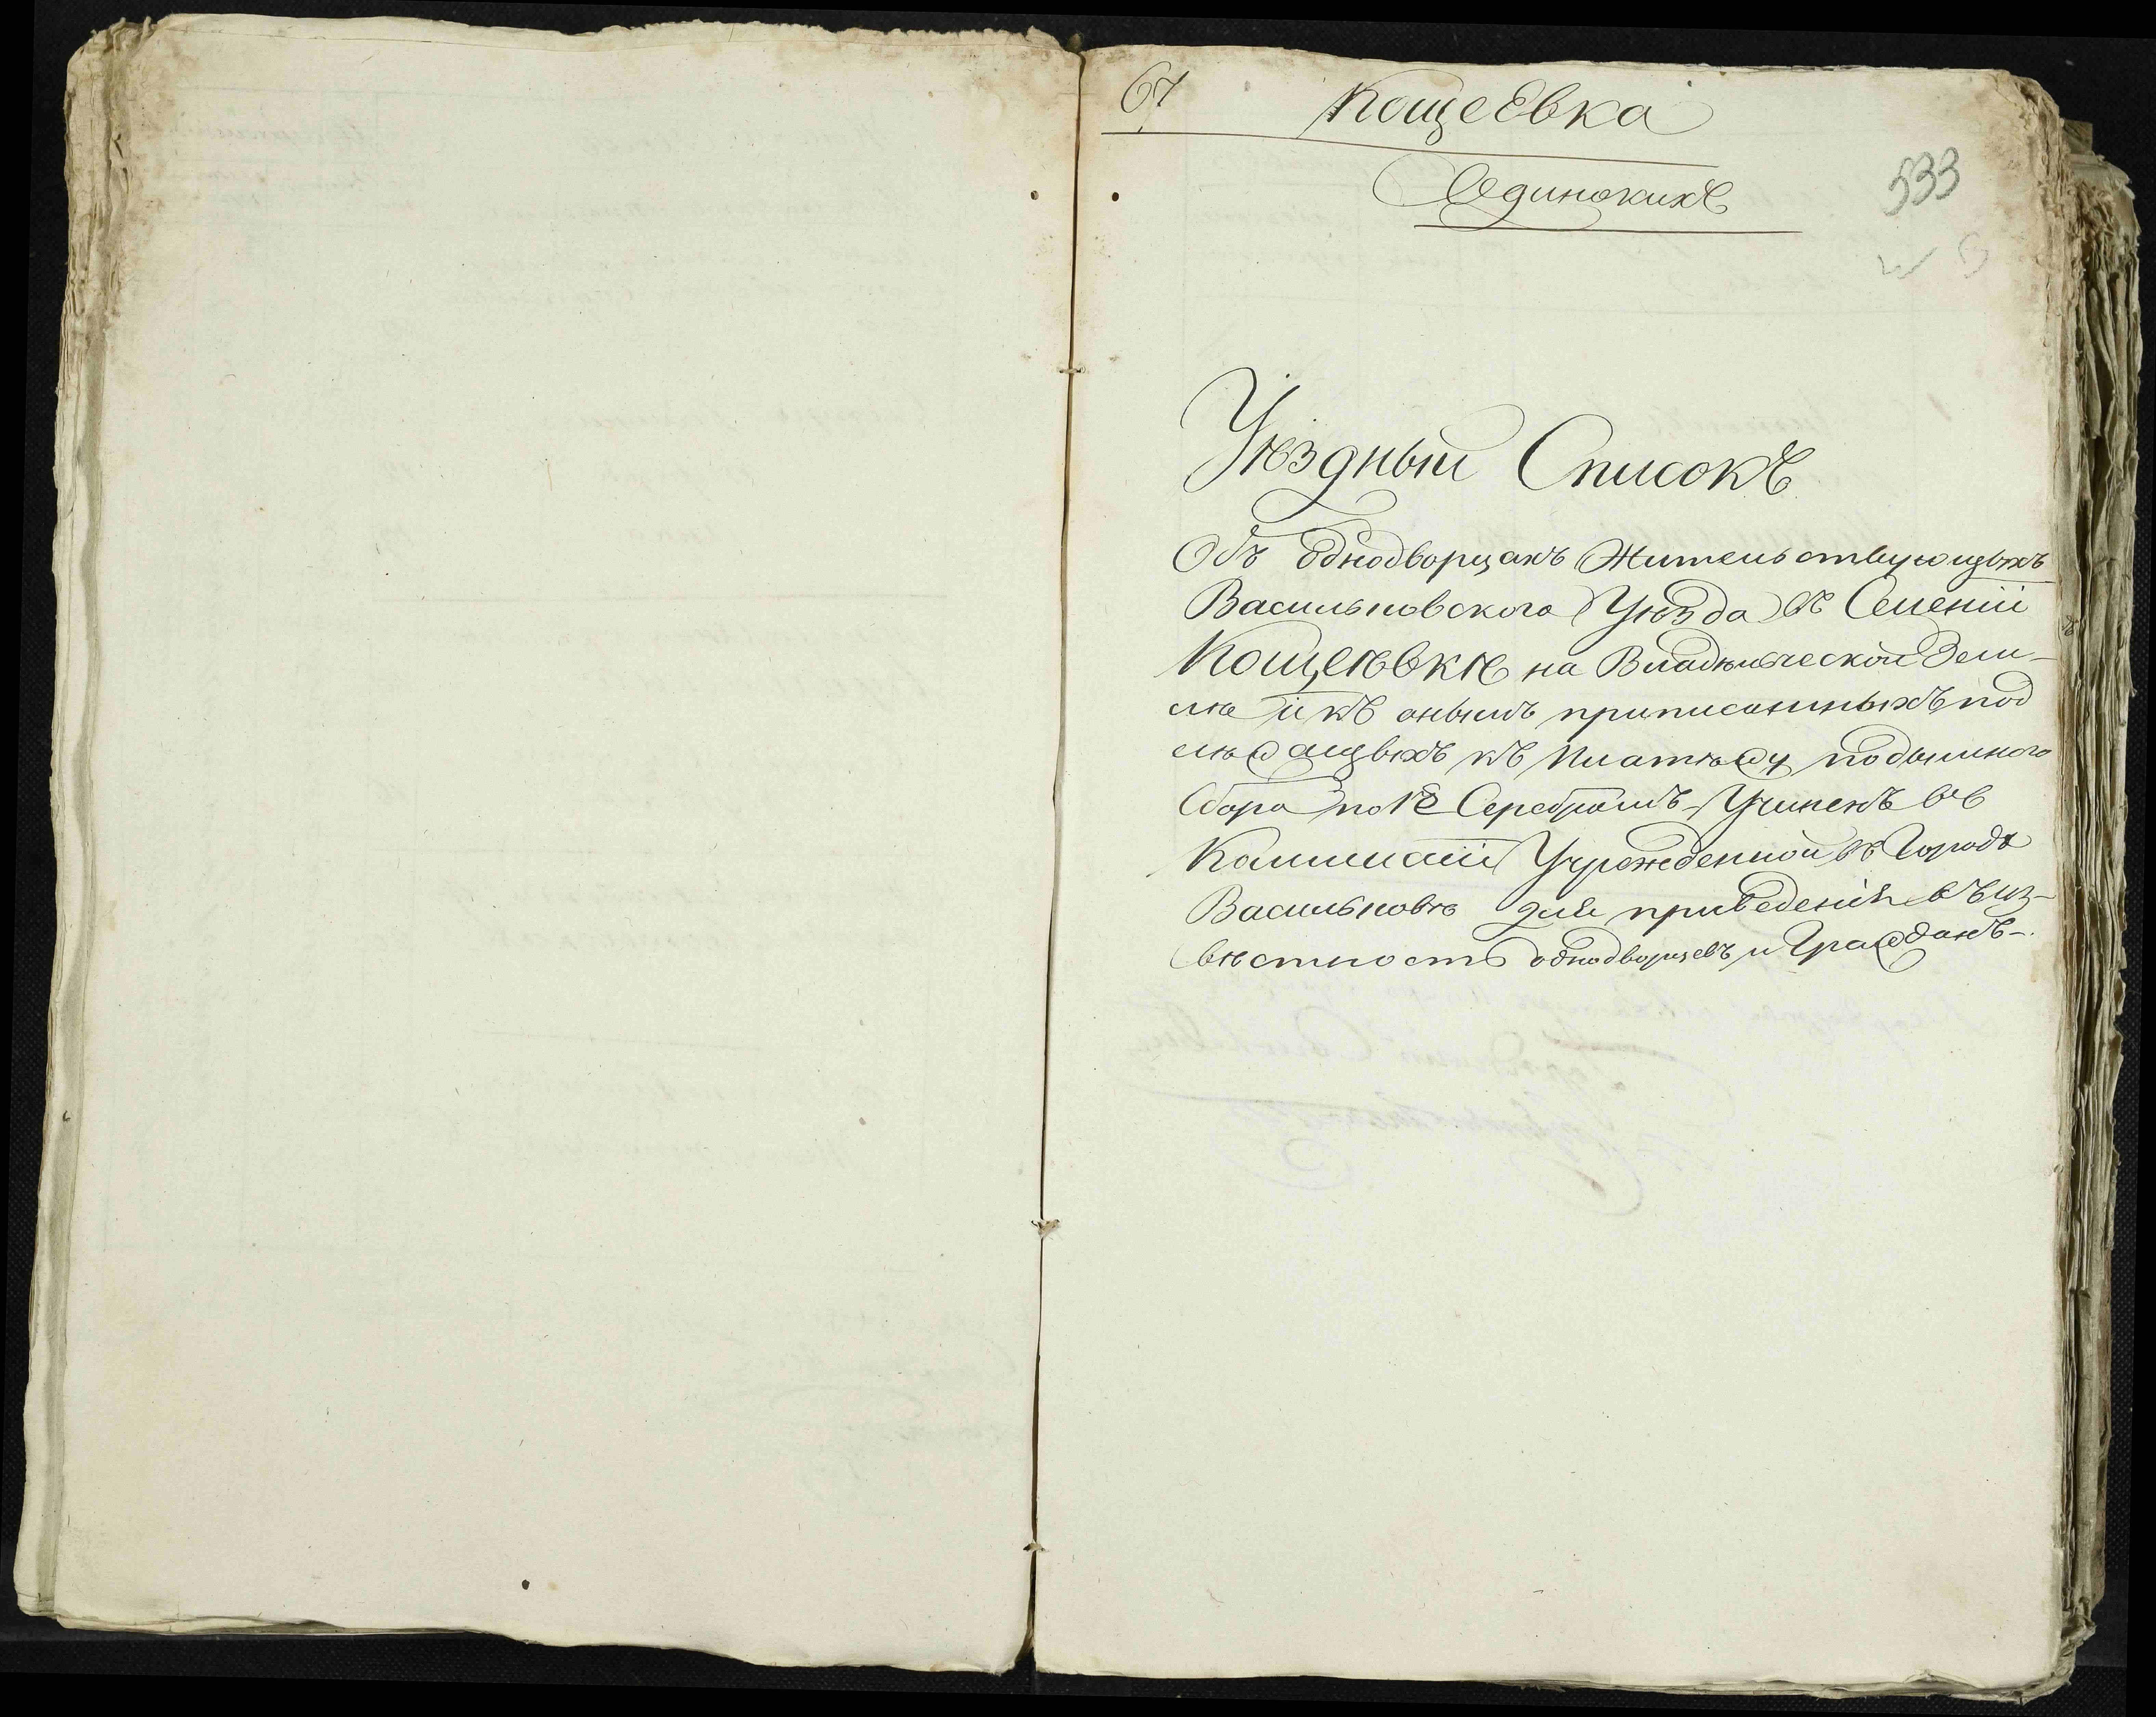 67 КощеЕвка
Одинокихъ
533
Уѣздный Списокъ
Объ однодворцахъ Жительствующихъ
Васильковского Уѣзда въ Селеніи
Кощеѣвкѣ на Владѣльческой Зем-
лѣ и къ онымъ приписанныхъ под
лежащихъ къ платежу подымного
Сбора по Серебромъ Учиненъ въ
Коммисіи Учрежденной въ Городѣ
Васильковѣ для приведенія въ из-
вѣстность однодворцевъ и Гражданъ-.